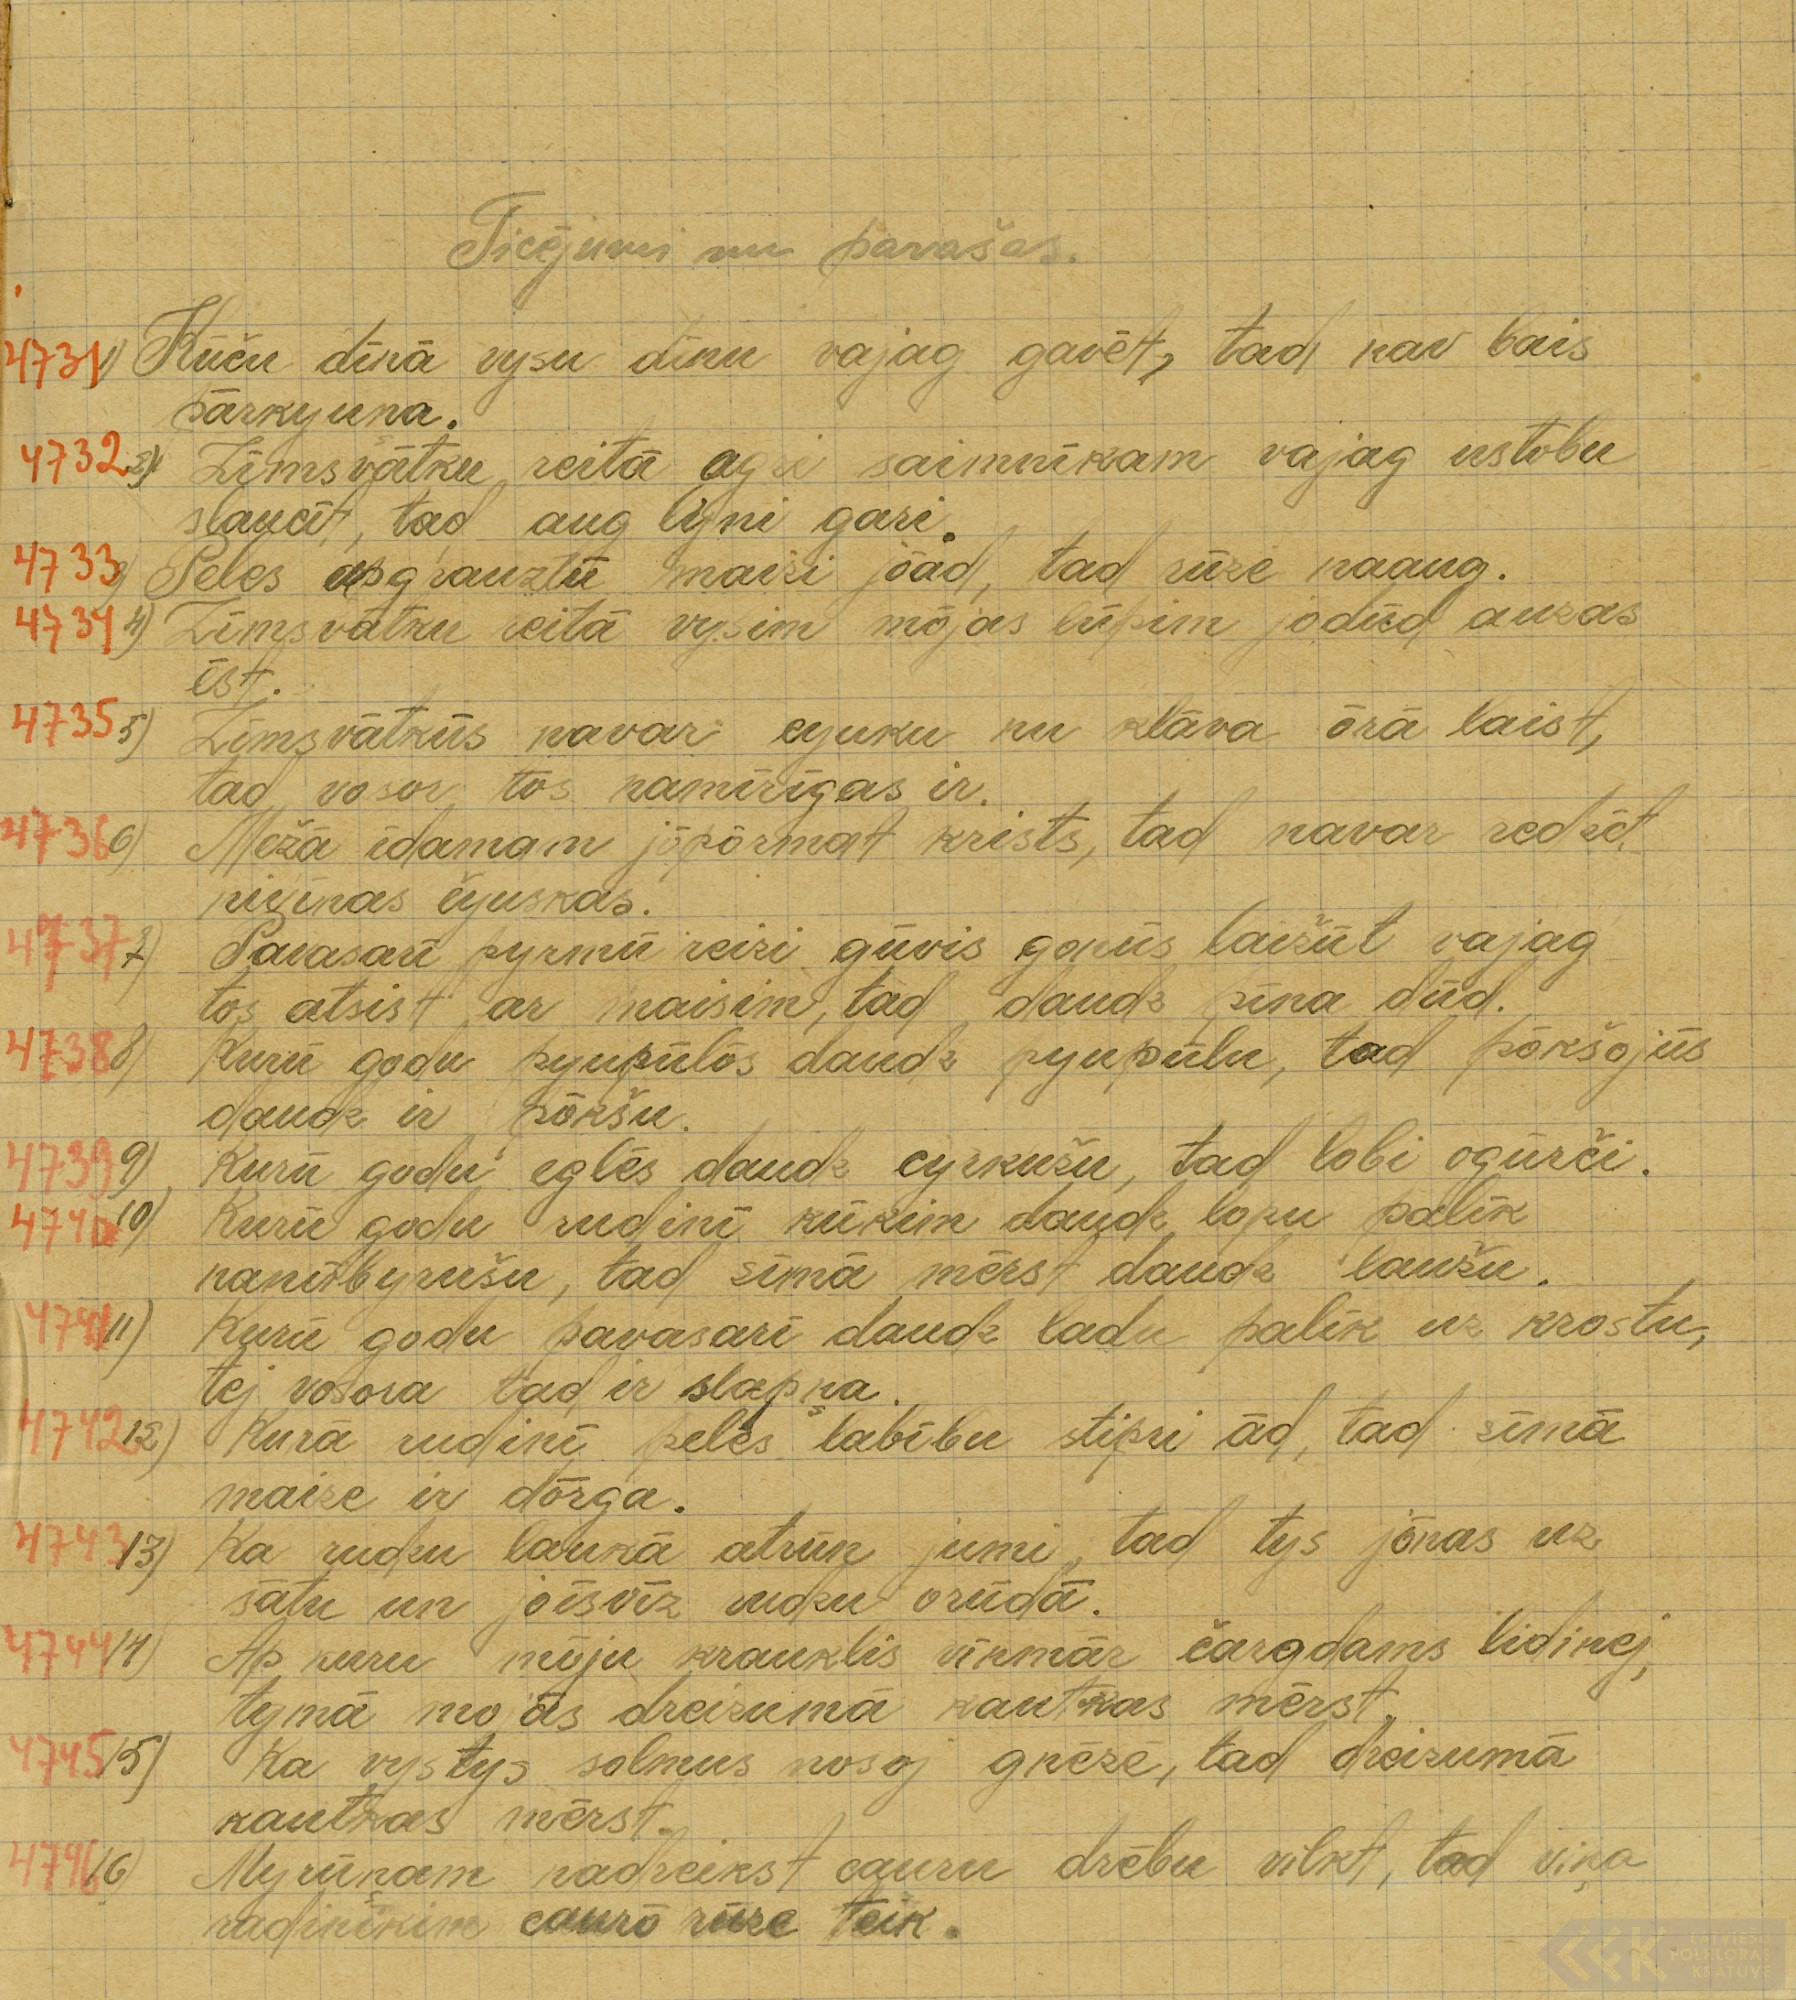 Ticējumi un parašas.
4731 1) Kūču dīnā vysu dīnu vajag gavēt, tad nav bais
pārkyuna.
4732 2) Zīmsvātku reitā agri saimnīkam vajag ustobu
slaucīt, tad aug lyni gari.
4733 3) Peles apgrauztū maizi jōād, tad rūze naaug.
4734 4) Zīmsvātku reitā vysim mōjas lūpim jodūd auzas
ēst.
4735 5) Zīmsvātkūs navar cyuku nu klāva ōrā laist,
tad vosor tos namīrīgas ir.
4736 6) Mežā īdamam jōpōrmat krists, tad navar redzēt
nivīnas čyuskas.
4737 7) Pavasarī pyrmū reizi gūvis gonūs laižūt vajag
tos atsist ar maisim, tad daudz pīna dūd.
4738 8) Kurū godu pyupūlōs daudz pyupūlu, tad pōkšōjūs
daudz ir pōkšu.
4739 9) Kurū godu eglēs daudz cyrkužu, tad lobi ogūrči.
4740 10) Kurū godu rudinī kūkim daudz lopu palīk
nanūbyrušu, tad zīmā mērst daudz laužu.
4741 11) Kurū godu pavasarī daudz ladu palīk uz krostu,
tej vosora tad ir slapņa.
4742 12) Kurā rudinī peles labību stipri ād, tad zīmā
maize ir dōrga.
4743 13) Ka rudzu laukā atrūn jumi, tad tys jōnas uz
sātu un jōīsvīž rudzu orūdā.
4744 14) Ap kuru mōju krauklis vīnmār čargdams lidinej,
tymā mojās dreizumā kautkas mērst.
4745 15) Ka vystys solmus nosoj gnēzē, tad dreizumā
kautkas mērst.
4746 16) Myrūnam nadreikst cauru drēbu vilkt, tad viņa
radinīkim caurō rūze teik.
LATVIEŠU
FOLKLORAS
KRĀTUVE